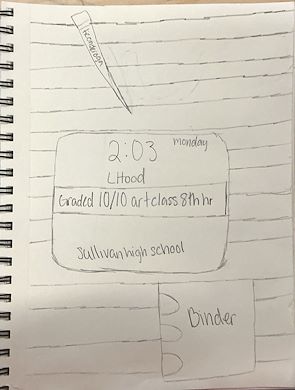 2:03 monday
LHood
Graded 10/10 art class 8th hr
Sullivan high school
Binder